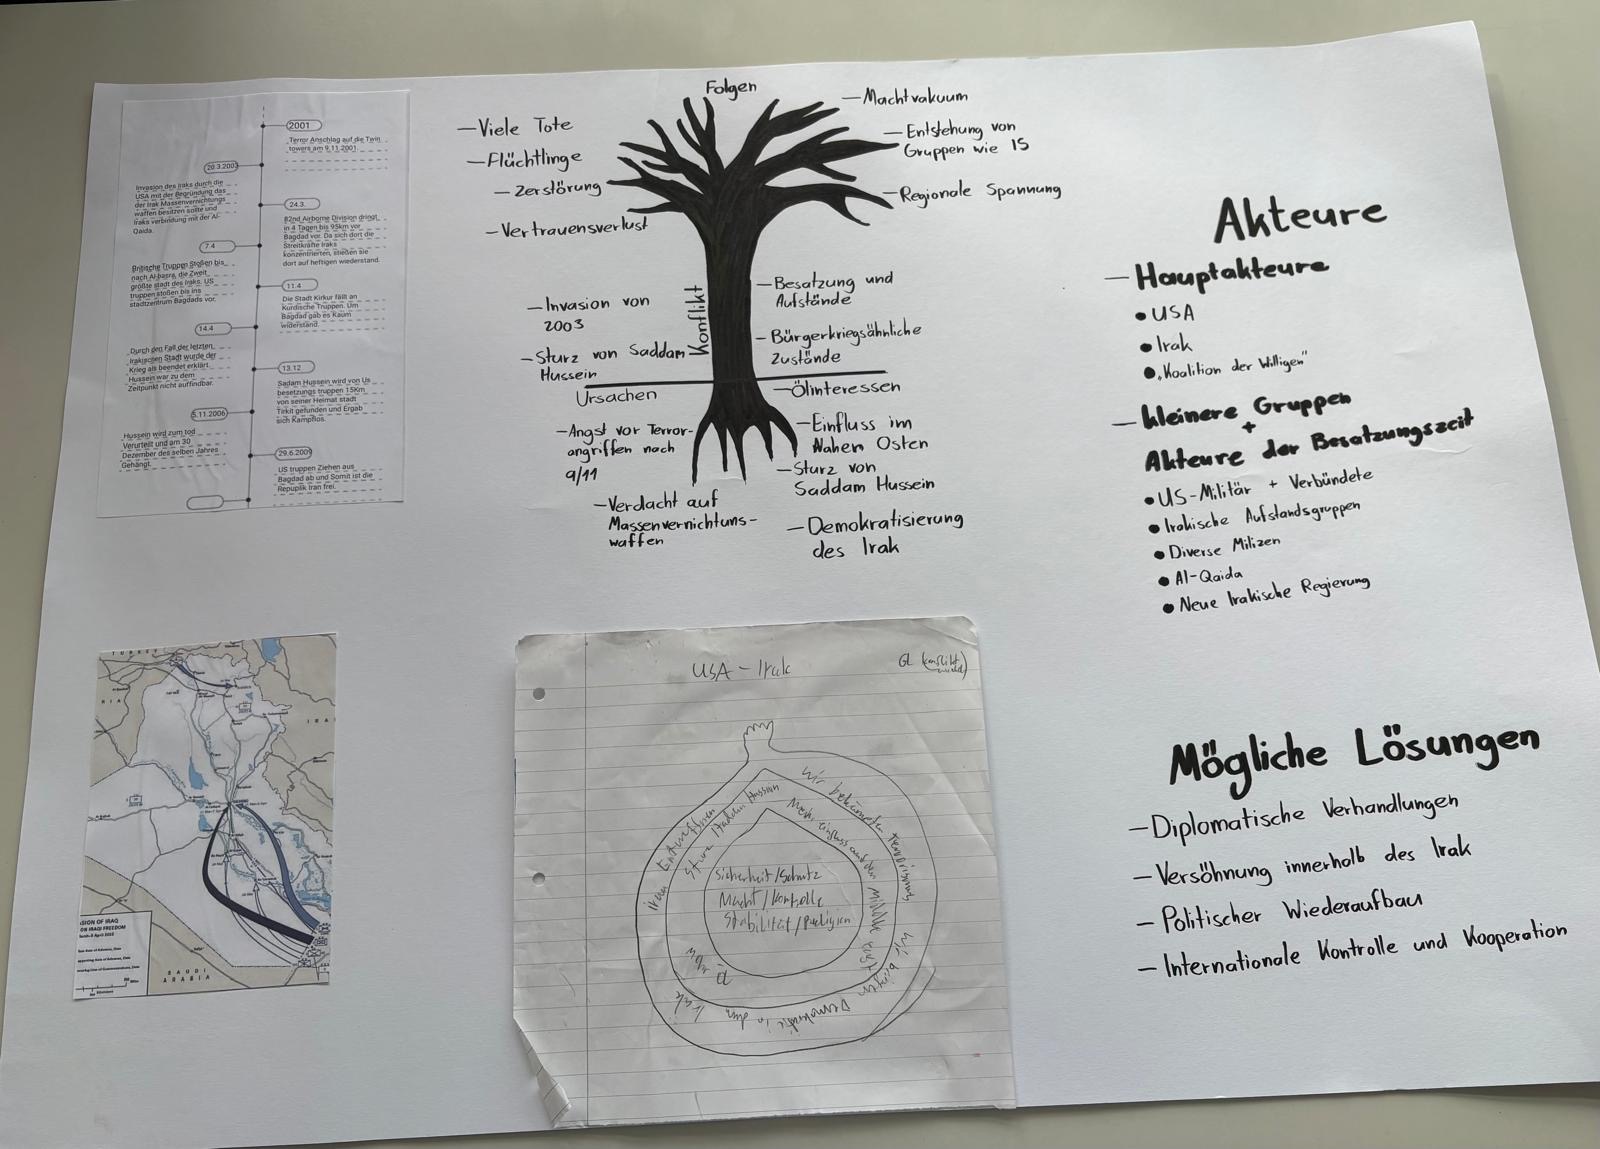 2001
Terror Anschlag auf die Twin
towers am 9.11.2001.
20.3.2003
Invasion des Iraks durch die
USA mit der Begründung das
der Irak Massenvernichtungs
waffen besitzen sollte und
Iraks verbindung mit der Al-
Qaida.
24.3.
82nd Airborne Division dringt
in 4 Tagen bis 95km vor
Bagdad vor. Da sich dort die
Streitkräfte Iraks
konzentrierten, stießen sie
dort auf heftigen wiederstand.
7.4
Britische Truppen Stoßen bis
nach Al-basra, die Zweit
größte stadt des Iraks. US
truppen stoßen bis ins
stadtzentrum Bagdads vor.
11.4
Die Stadt Kirkur fällt an
Kurdische Truppen. Um
Bagdad gab es Kaum
widerstand.
14.4
Durch den Fall der letzten
Irakischen Stadt wurde der
Krieg als beendet erklärt.
Hussein war zu dem
Zeitpunkt nicht auffindbar.
13.12
Sadam Hussein wird von Us
besetzungs truppen 15Km
von seiner Heimat stadt
Tirkit gefunden und Ergab
sich Kampflos.
5.11.2006
Hussein wird zum tod
Verurteilt und am 30
Dezember des selben Jahres
Gehängt.
29.6.2009
US truppen Ziehen aus
Bagdad ab und Somit ist die
Repuplik Iran frei.
Folgen
— Viele Tote
— Flüchtlinge
— Zerstörung
— Vertrauensverlust
— Machtvakuum
— Entstehung von
Gruppen wie IS
— Regionale Spannung
Konflikt
— Invasion von
2003
— Sturz von Saddam
Hussein
— Besatzung und
Aufstände
— Bürgerkriegsähnliche
Zustände
Ursachen
— Angst vor Terror-
angriffen nach
9/11
— Verdacht auf
Massenvernichtuns-
waffen
— Ölinteressen
— Einfluss im
Nahen Osten
— Sturz von
Saddam Hussein
— Demokratisierung
des Irak
Akteure
— Hauptakteure
• USA
• Irak
• „Koalition der Willigen"
— kleinere Gruppen
+
Akteure der Besatzungszeit
• US-Militär + Verbündete
• Irakische Aufstandsgruppen
• Diverse Milizen
• Al-Qaida
• Neue Irakische Regierung
SION OF IRAQ
ON IRAQI FREEDOM
SAUDI
ARABIA
USA - Irak
GL
Wir bekämpfen Terrorismus
Wir bringen Demokratie in den Irak
Irak Entwaffnen
Sturz Saddam Hussein
Mehr einfluss auf den Middle East
Sicherheit/Schutz
Macht/Kontrolle
Stabilität/Religion
Mögliche Lösungen
— Diplomatische Verhandlungen
— Versöhnung innerhalb des Irak
— Politischer Wiederaufbau
— Internationale Kontrolle und Kooperation